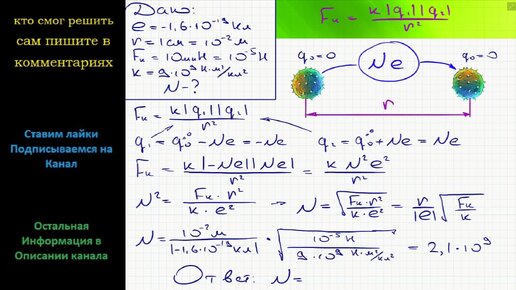 кто смог решить
сам пишите в
комментариях
Ставим лайки
Подписываемся на
Канал
Остальная
Информация в
Описании канала
Дано:
e=-1,6·10⁻¹⁹ Кл
r=1см=10⁻² м
Fₖ=10мкН=10⁻⁵ Н
k=9·10⁹ Н·м²/Кл²
N-?
Fₖ = k|q₁||q₂|/r²
q₀=0 Ne q₀=0
r
Fₖ = k|q₁||q₂|/r²
q₁ = q₀ - Ne = -Ne q₂ = q₀ + Ne = Ne
Fₖ = k|-Ne||Ne|/r² = kN²e²/r²
N² = Fₖ·r²/k·e² → N = √(Fₖ·r²/k·e²) = r/|e| √(Fₖ/k)
N = 10⁻² м/|-1,6·10⁻¹⁹ Кл| · √(10⁻⁵ Н/9·10⁹ Н·м²/Кл²) = 2,1·10⁹
Ответ: N=